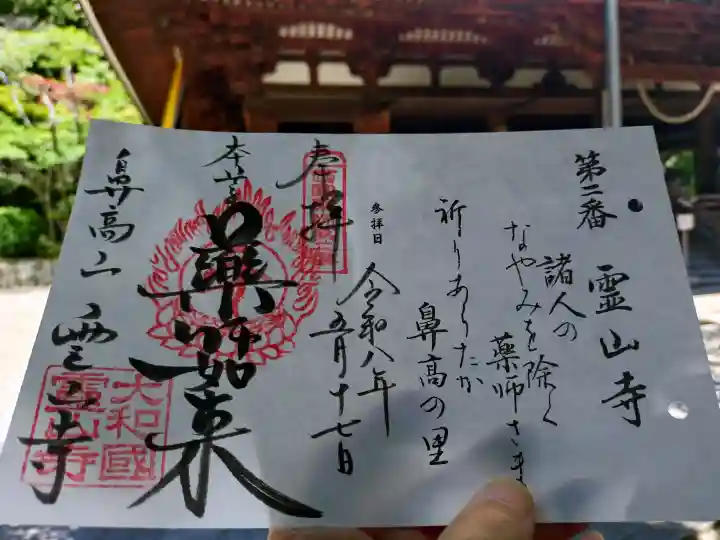 第二番 霊山寺
諸人の
なやみを除く
薬師さま
祈りありたか
鼻高の里
参拝日
令和八年
五月十七日
奉拝
本尊
薬師如来
鼻高山 霊山寺
大和國
霊山寺